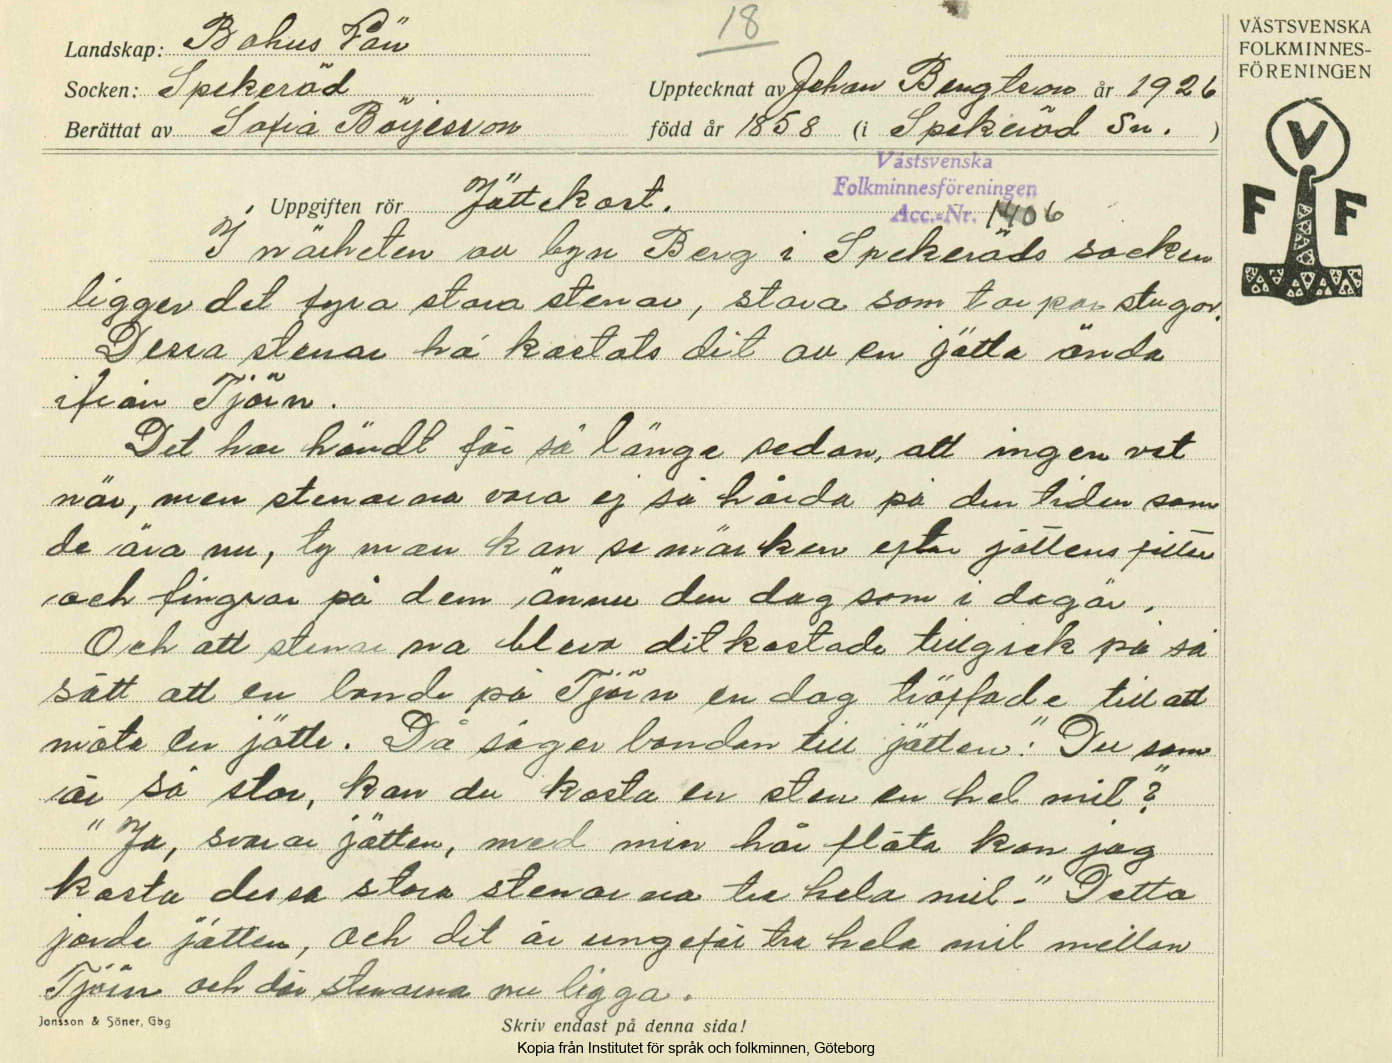 18
VÄSTSVENSKA
FOLKMINNES-
FÖRENINGEN
V
F F
Landskap: Bohus Län
Socken: Spekeröd Upptecknat av Johan Bengtson år 1926
Berättat av Sofia Börjesson född år 1858 (i Spekeröd Sn. )
Västsvenska
Folkminnesföreningen
Acc.-Nr. 1406
Uppgiften rör Jättekast.
I närheten av byn Berg i Spekeröds socken
ligger det fyra stora stenar, stora som torpar stugor.
Dessa stenar ha kastats dit av en jätte ända
ifrån Tjörn.
Det har händt för så länge sedan, att ingen vet
när, men stenarna vara ej så hårda på den tiden som
de ära nu, ty man kan se märken efter jättens fötter
och fingrar på dem ännu den dag som i dag är.
Och att stenarna bleva ditkastade tillgick på så
sätt att en bonde på Tjörn en dag träffade till att
möta en jätte. Då säger bonden till jätten: "Du som
är så stor, kan du kasta en sten en hel mil?"
"Ja, svarar jätten, med min hår fläta kan jag
kasta dessa stora stenarna tre hela mil." Detta
jorde jätten, och det är ungefär tre hela mil mellan
Tjörn och där stenarna nu ligga.
Jonsson & Söner, Gbg
Skriv endast på denna sida!
Kopia från Institutet för språk och folkminnen, Göteborg